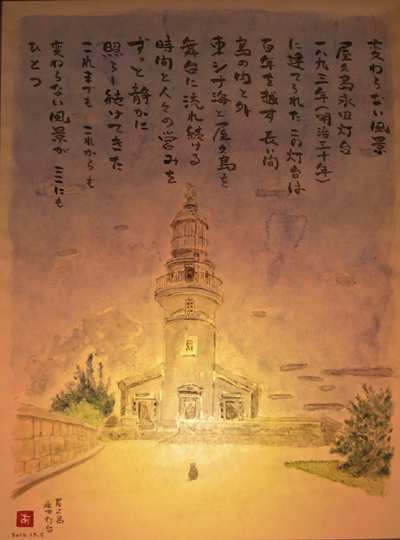 変わらない風景
屋久島永田灯台
一八九七年(明治三十年)
に建てられたこの灯台は
百年を越す長い間
島の内と外
東シナ海と屋久島を
舞台に流れ続ける
時間と人々の営みを
ずっと静かに
照らし続けてきた
これまでも これからも
変わらない風景が ここにも
ひとつ
屋久島
永田灯台
あ